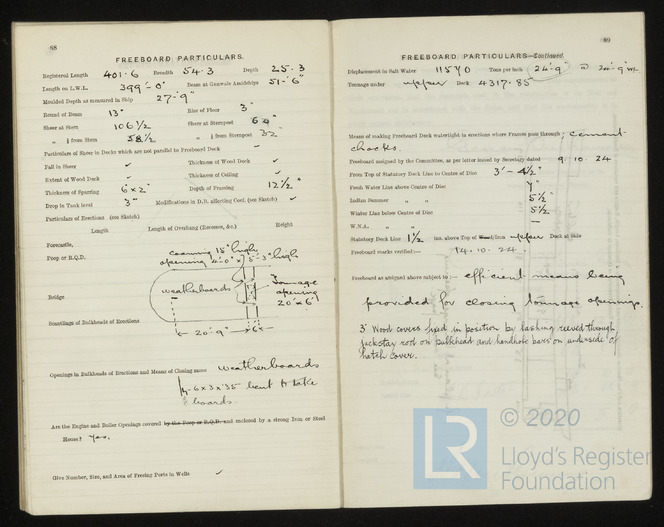 88
FREEBOARD PARTICULARS.
Registered Length 401·6 Breadth 54·3 Depth 25·3
Length on L.W.L. 399'-0" Beam at Gunwale Amidships 51'-6"
Moulded Depth as measured in Ship 27'-9"
Round of Beam 13" Rise of Floor 3"
Sheer at Stem 106½ Sheer at Sternpost 64"
" ⅛ from Stem 58½ " ⅛ from Sternpost 32
Particulars of Sheer in Decks which are not parallel to Freeboard Deck ✓
Fall in Sheer ✓ Thickness of Wood Deck ✓
Extent of Wood Deck ✓ Thickness of Ceiling ✓
Thickness of Sparring 6×2" Depth of Framing 12½"
Drop in Tank level 3" Modifications in D.B. affecting Coef. (see Sketch) ✓
Particulars of Erections (see Sketch)
Length Length of Overhang (Recesses, &c.) Height
Forecastle,
Poop or R.Q.D. coaming 15" high
opening 4'-0" × 5'-3" high
weatherboards
Tonnage
opening
20' × 6'
Bridge
Scantlings of Bulkheads of Erections
20'-9" 6"
Openings in Bulkheads of Erections and Means of Closing same weatherboards
6×3×·35 bent to take
boards.
Are the Engine and Boiler Openings covered by the Poop or R.Q.D. and enclosed by a strong Iron or Steel
House? Yes.
Give Number, Size, and Area of Freeing Ports in Wells ✓
89
FREEBOARD PARTICULARS—Continued.
Displacement in Salt Water 11570 Tons per inch 24'-9"
Tonnage under upper Deck 4317·85
Means of making Freeboard Deck watertight in erections where Frames pass through: cement
chocks.
Freeboard assigned by the Committee, as per letter issued by Secretary dated 9.10.24
From Top of Statutory Deck Line to Centre of Disc 3'-4½"
Fresh Water Line above Centre of Disc 7"
Indian Summer " " 5½"
Winter Line below Centre of Disc 5½
W.N.A. " " —
Statutory Deck Line 1½ ins. above Top of Wood from upper Deck at Side
Freeboard marks verified:— 14.10.24.
Freeboard as assigned above subject to:— efficient means being
provided for closing tonnage openings.
3" Wood covers fixed in position by lashing reeved through
jackstay rod on bulkhead and handhole bars on underside of
hatch cover.
© 2020
LR
Lloyd's Register
Foundation